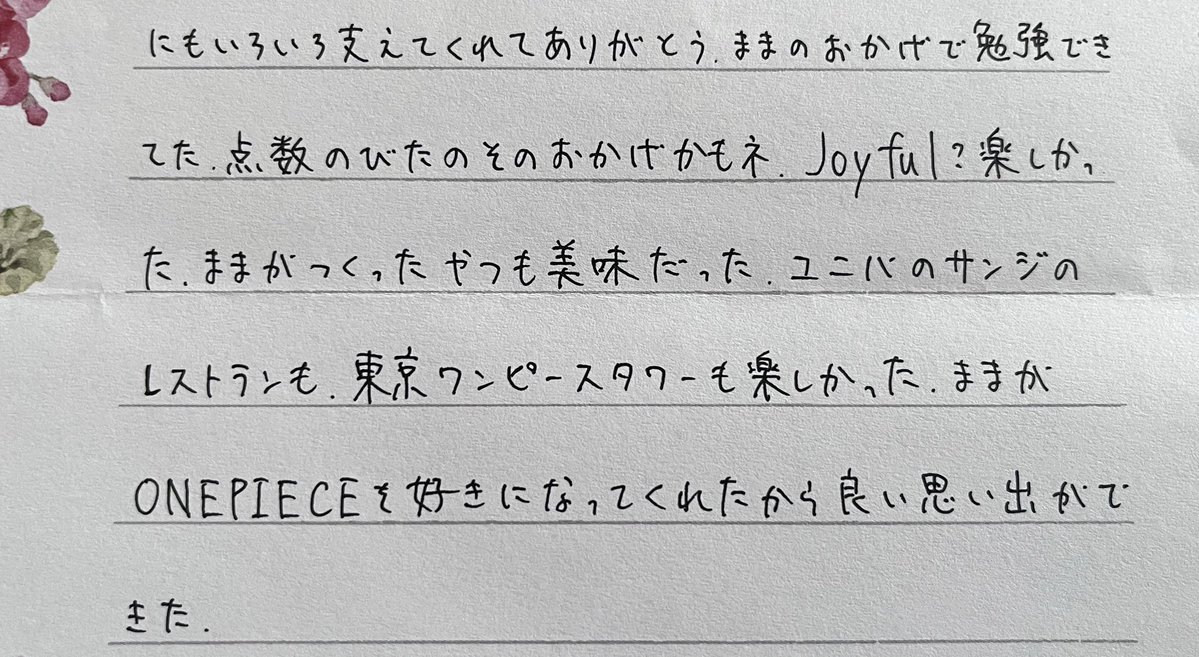 にもいろいろ支えてくれてありがとう.ままのおかげで勉強でき
てた.点数のびたのそのおかげかもネ.Joyful?楽しかっ
た.ままがつくったやつも美味だった.ユニバのサンジの
レストランも.東京ワンピースタワーも楽しかった.ままが
ONEPIECEを好きになってくれたから良い思い出がで
きた.